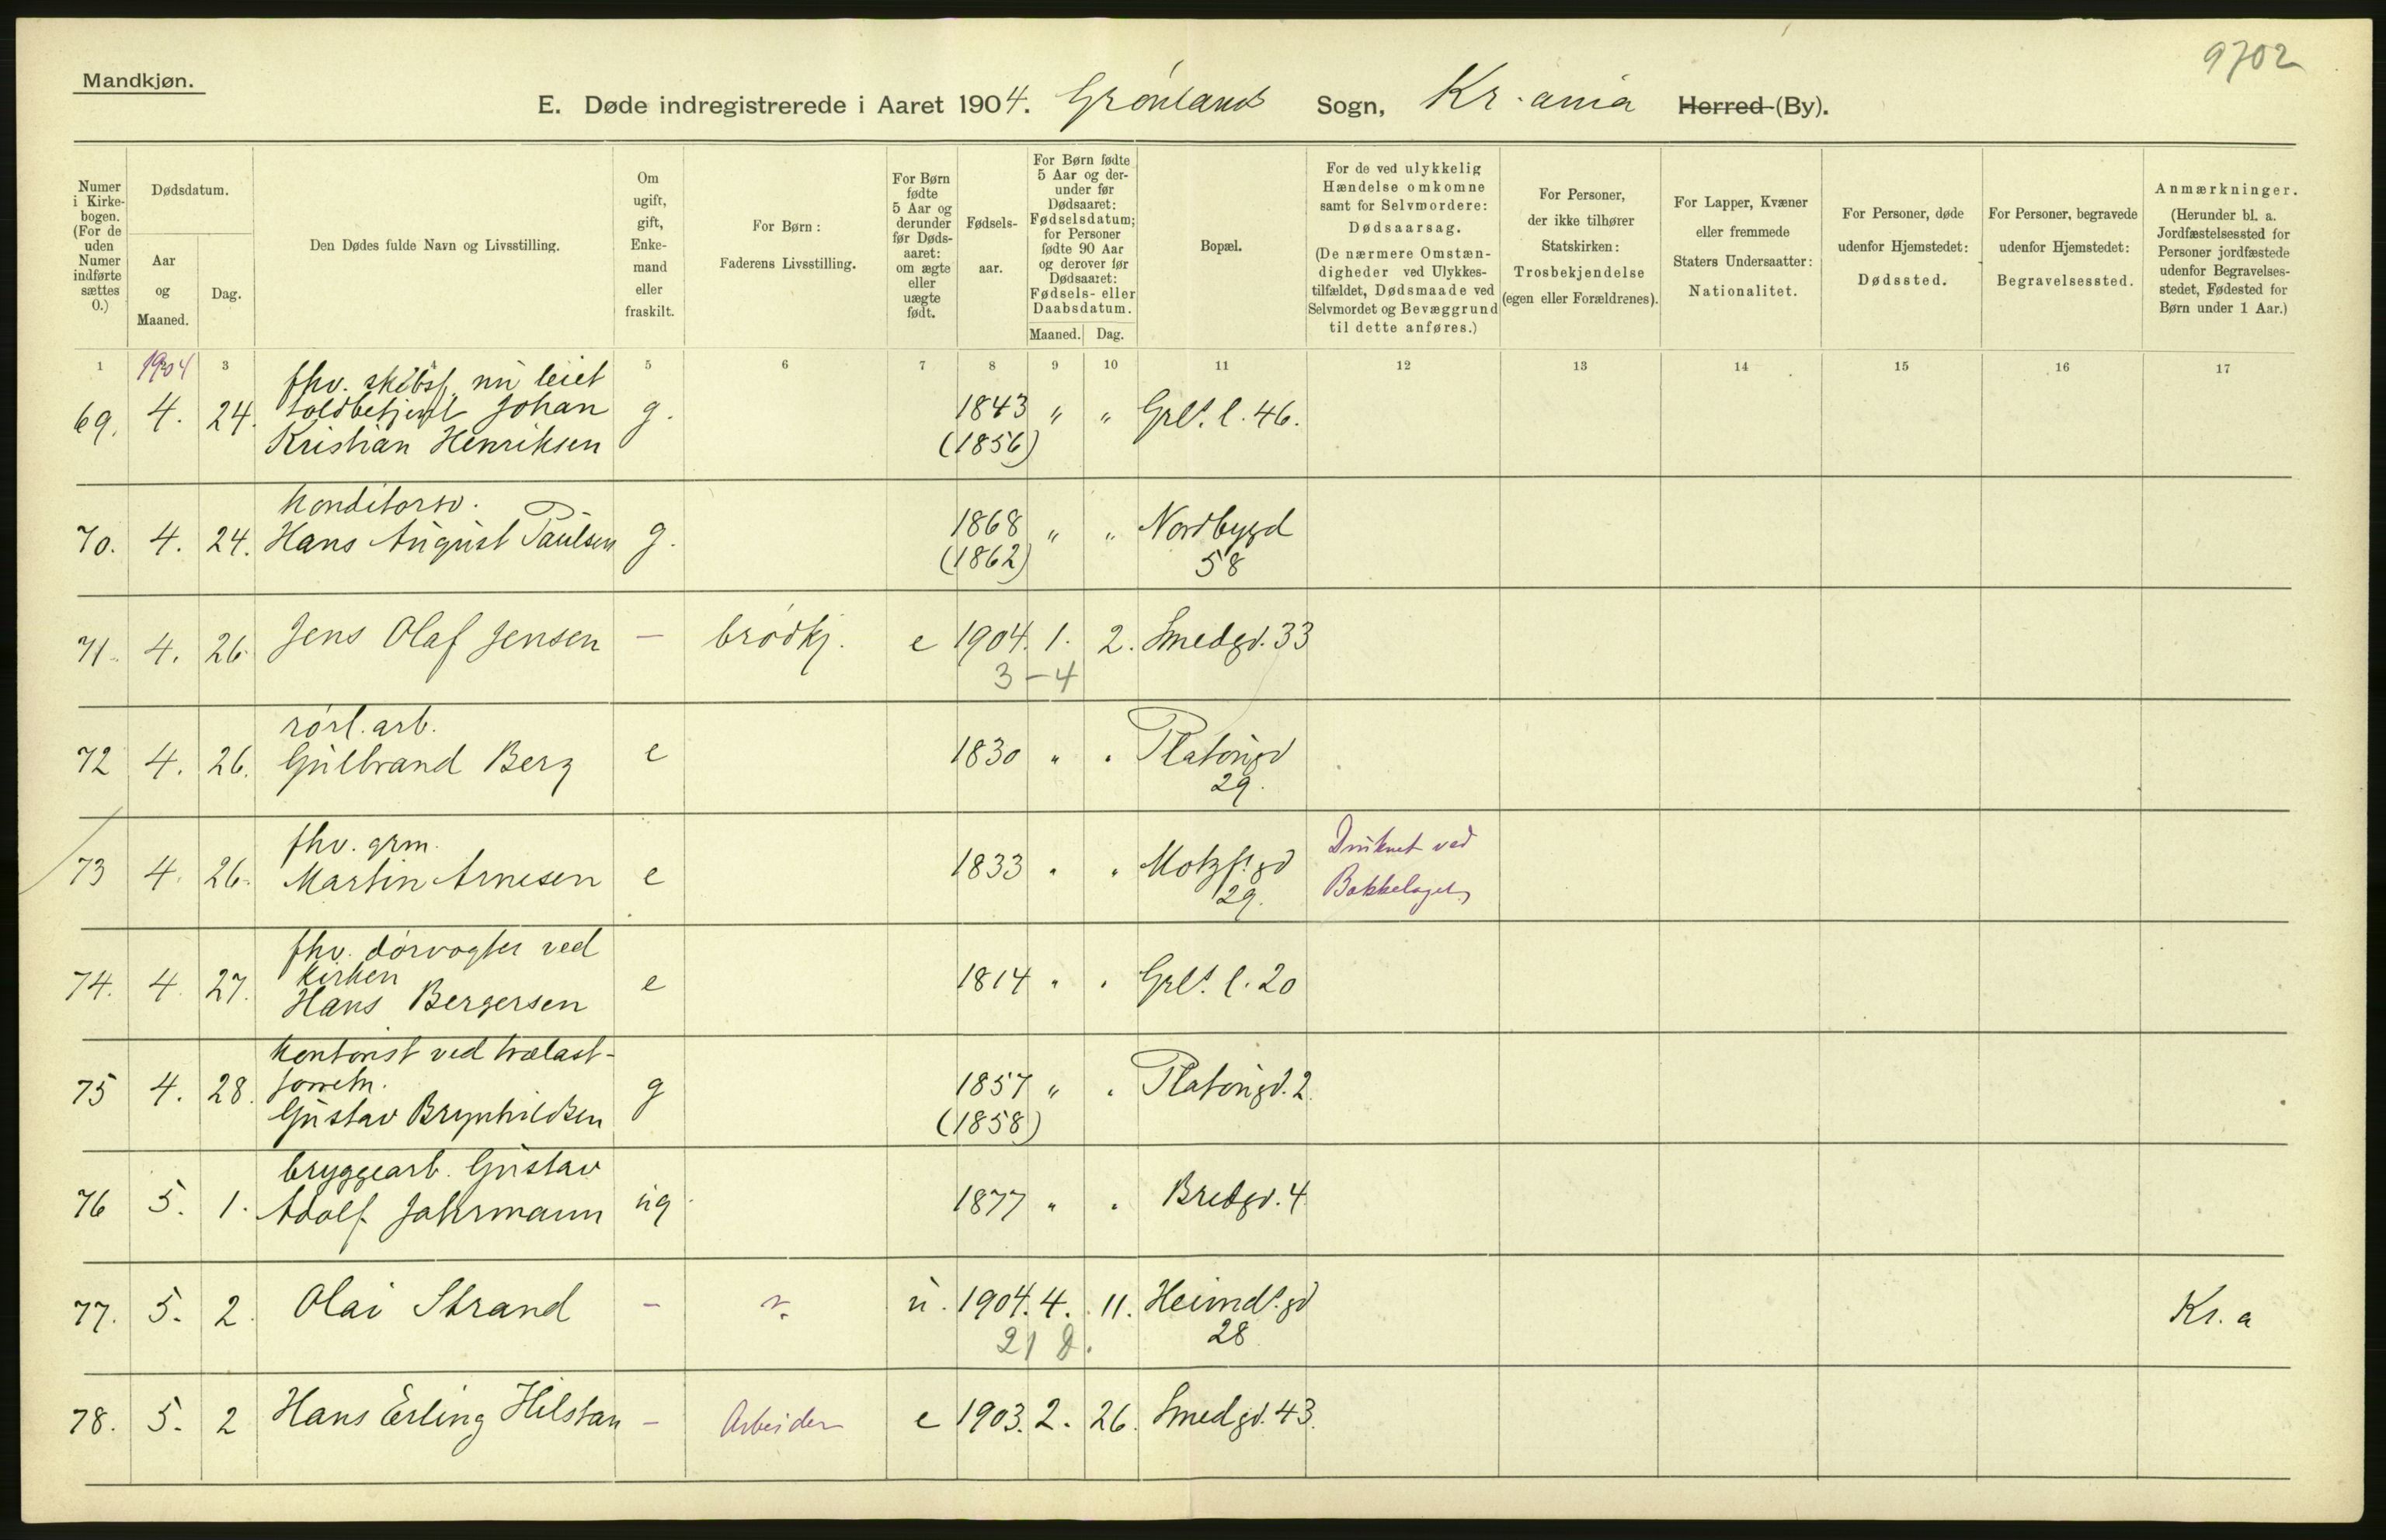 9702
Mandkjøn.
E. Døde indregistrerede i Aaret 1904. Grønlands Sogn, Kr.ania Herred (By).
Numer i Kirkebogen. (For de uden Numer indførte sættes 0.)
Dødsdatum.
Aar og Maaned.
Dag.
Den Dødes fulde Navn og Livsstilling.
Om ugift, gift, Enkemand eller fraskilt.
For Børn: Faderens Livsstilling.
For Børn fødte 5 Aar og derunder før Dødsaaret: om ægte eller uægte født.
Fødselsaar.
For Børn fødte 5 Aar og derunder før Dødsaaret: Fødselsdatum; for Personer fødte 90 Aar og derover før Dødsaaret: Fødsels- eller Daabsdatum.
Maaned. Dag.
Bopæl.
For de ved ulykkelig Hændelse omkomne samt for Selvmordere: Dødsaarsag. (De nærmere Omstændigheder ved Ulykkestilfældet, Dødsmaade ved Selvmordet og Bevæggrund til dette anføres.)
For Personer, der ikke tilhører Statskirken: Trosbekjendelse (egen eller Forældrenes).
For Lapper, Kvæner eller fremmede Staters Undersaatter: Nationalitet.
For Personer, døde udenfor Hjemstedet: Dødssted.
For Personer, begravede udenfor Hjemstedet: Begravelsessted.
Anmærkninger. (Herunder bl. a. Jordfæstelsessted for Personer jordfæstede udenfor Begravelsesstedet, Fødested for Børn under 1 Aar.)
1 1904 3 5 6 7 8 9 10 11 12 13 14 15 16 17
fhv. skibsf. nu leiet
69. 4. 24. toldbetjent Johan g. 1843 " " Grl.s l. 46.
Kristian Henriksen (1856)
Konditorsv.
70. 4. 24. Hans August Paulsen g. 1868 " " Nordbygd
(1862) 58
71. 4. 26. Jens Olaf Jensen — brødkj. e 1904. 1. 2. Smedgd. 33
3 - 4
rørl. arb.
72 4. 26. Gulbrand Berg e 1830 " " Platougd
29.
fhv. grm.
73 4. 26. Martin Arnesen e 1833 " " Motzf.s gd Druknet ved
29. Bækkelaget
fhv. dørvogter ved
kirken
74. 4. 27. Hans Bergersen e 1814 " " Grl.s l. 20
Kontorist ved trælast-
75 4. 28. forretn. g 1857 " " Platougd. 2.
Gustav Brynhildsen (1858)
bryggearb. Gustav
76 5. 1. Adolf Jahrmann ug. 1877 " " Bredgd. 4
77. 5. 2. Olai Strand — u. 1904. 4. 11. Heimd.s gd Kr. a
21 d. 28
78. 5. 2 Hans Erling Hilstan — Arbeider e 1903. 2. 26. Smedgd. 43.